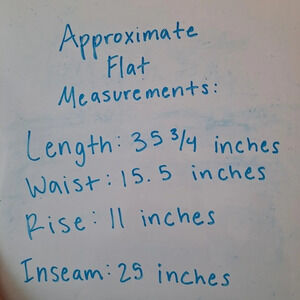 Approximate
Flat
Measurements:
Length: 35 3/4 inches
Waist: 15.5 inches
Rise: 11 inches
Inseam: 25 inches